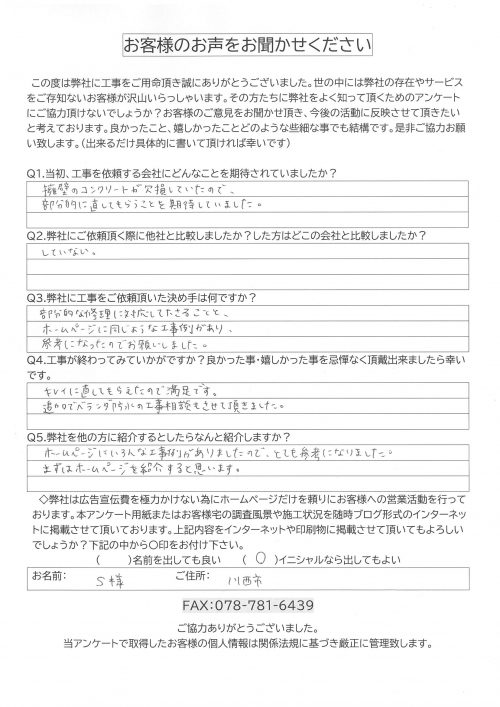 お客様のお声をお聞かせください
この度は弊社に工事をご用命頂き誠にありがとうございました。世の中には弊社の存在やサービス
をご存知ないお客様が沢山いらっしゃいます。その方たちに弊社をよく知って頂くためのアンケート
にご協力頂けないでしょうか？お客様のご意見をお聞かせ頂き、今後の活動に反映させて頂きたい
と考えております。良かったこと、嬉しかったことどのような些細な事でも結構です。是非ご協力お願
い致します。（出来るだけ具体的に書いて頂ければ幸いです）
Q1.当初、工事を依頼する会社にどんなことを期待されていましたか？
擁壁のコンクリートが欠損していたので、
部分的に直してもらうことを期待していました。
Q2.弊社にご依頼頂く際に他社と比較しましたか？した方はどこの会社と比較しましたか？
していない。
Q3.弊社に工事をご依頼頂いた決め手は何ですか？
部分的な修理に対応してたさることと、
ホームページに同じような工事例があり、
参考になったのでお願いしました。
Q4.工事が終わってみていかがですか？良かった事・嬉しかった事を忌憚なく頂戴出来ましたら幸い
です。
キレイに直してもらえたので満足です。
追加でベランダ防水の工事相談もさせて頂きました。
Q5.弊社を他の方に紹介するとしたらなんと紹介しますか？
ホームページにいろんな工事例がありましたので、とても参考になりました。
まずはホームページを紹介すると思います。
◇弊社は広告宣伝費を極力かけない為にホームページだけを頼りにお客様への営業活動を行って
おります。本アンケート用紙またはお客様宅の調査風景や施工状況を随時ブログ形式のインターネッ
トに掲載させて頂いております。上記内容をインターネットや印刷物に掲載させて頂いてもよろしい
でしょうか？下記の中から〇印をお付け下さい。
（　　）名前を出しても良い　（ 〇 ）イニシャルなら出してもよい
お名前： S様 ご住所： 川西市
FAX:078-781-6439
ご協力ありがとうございました。
当アンケートで取得したお客様の個人情報は関係法規に基づき厳正に管理致します。